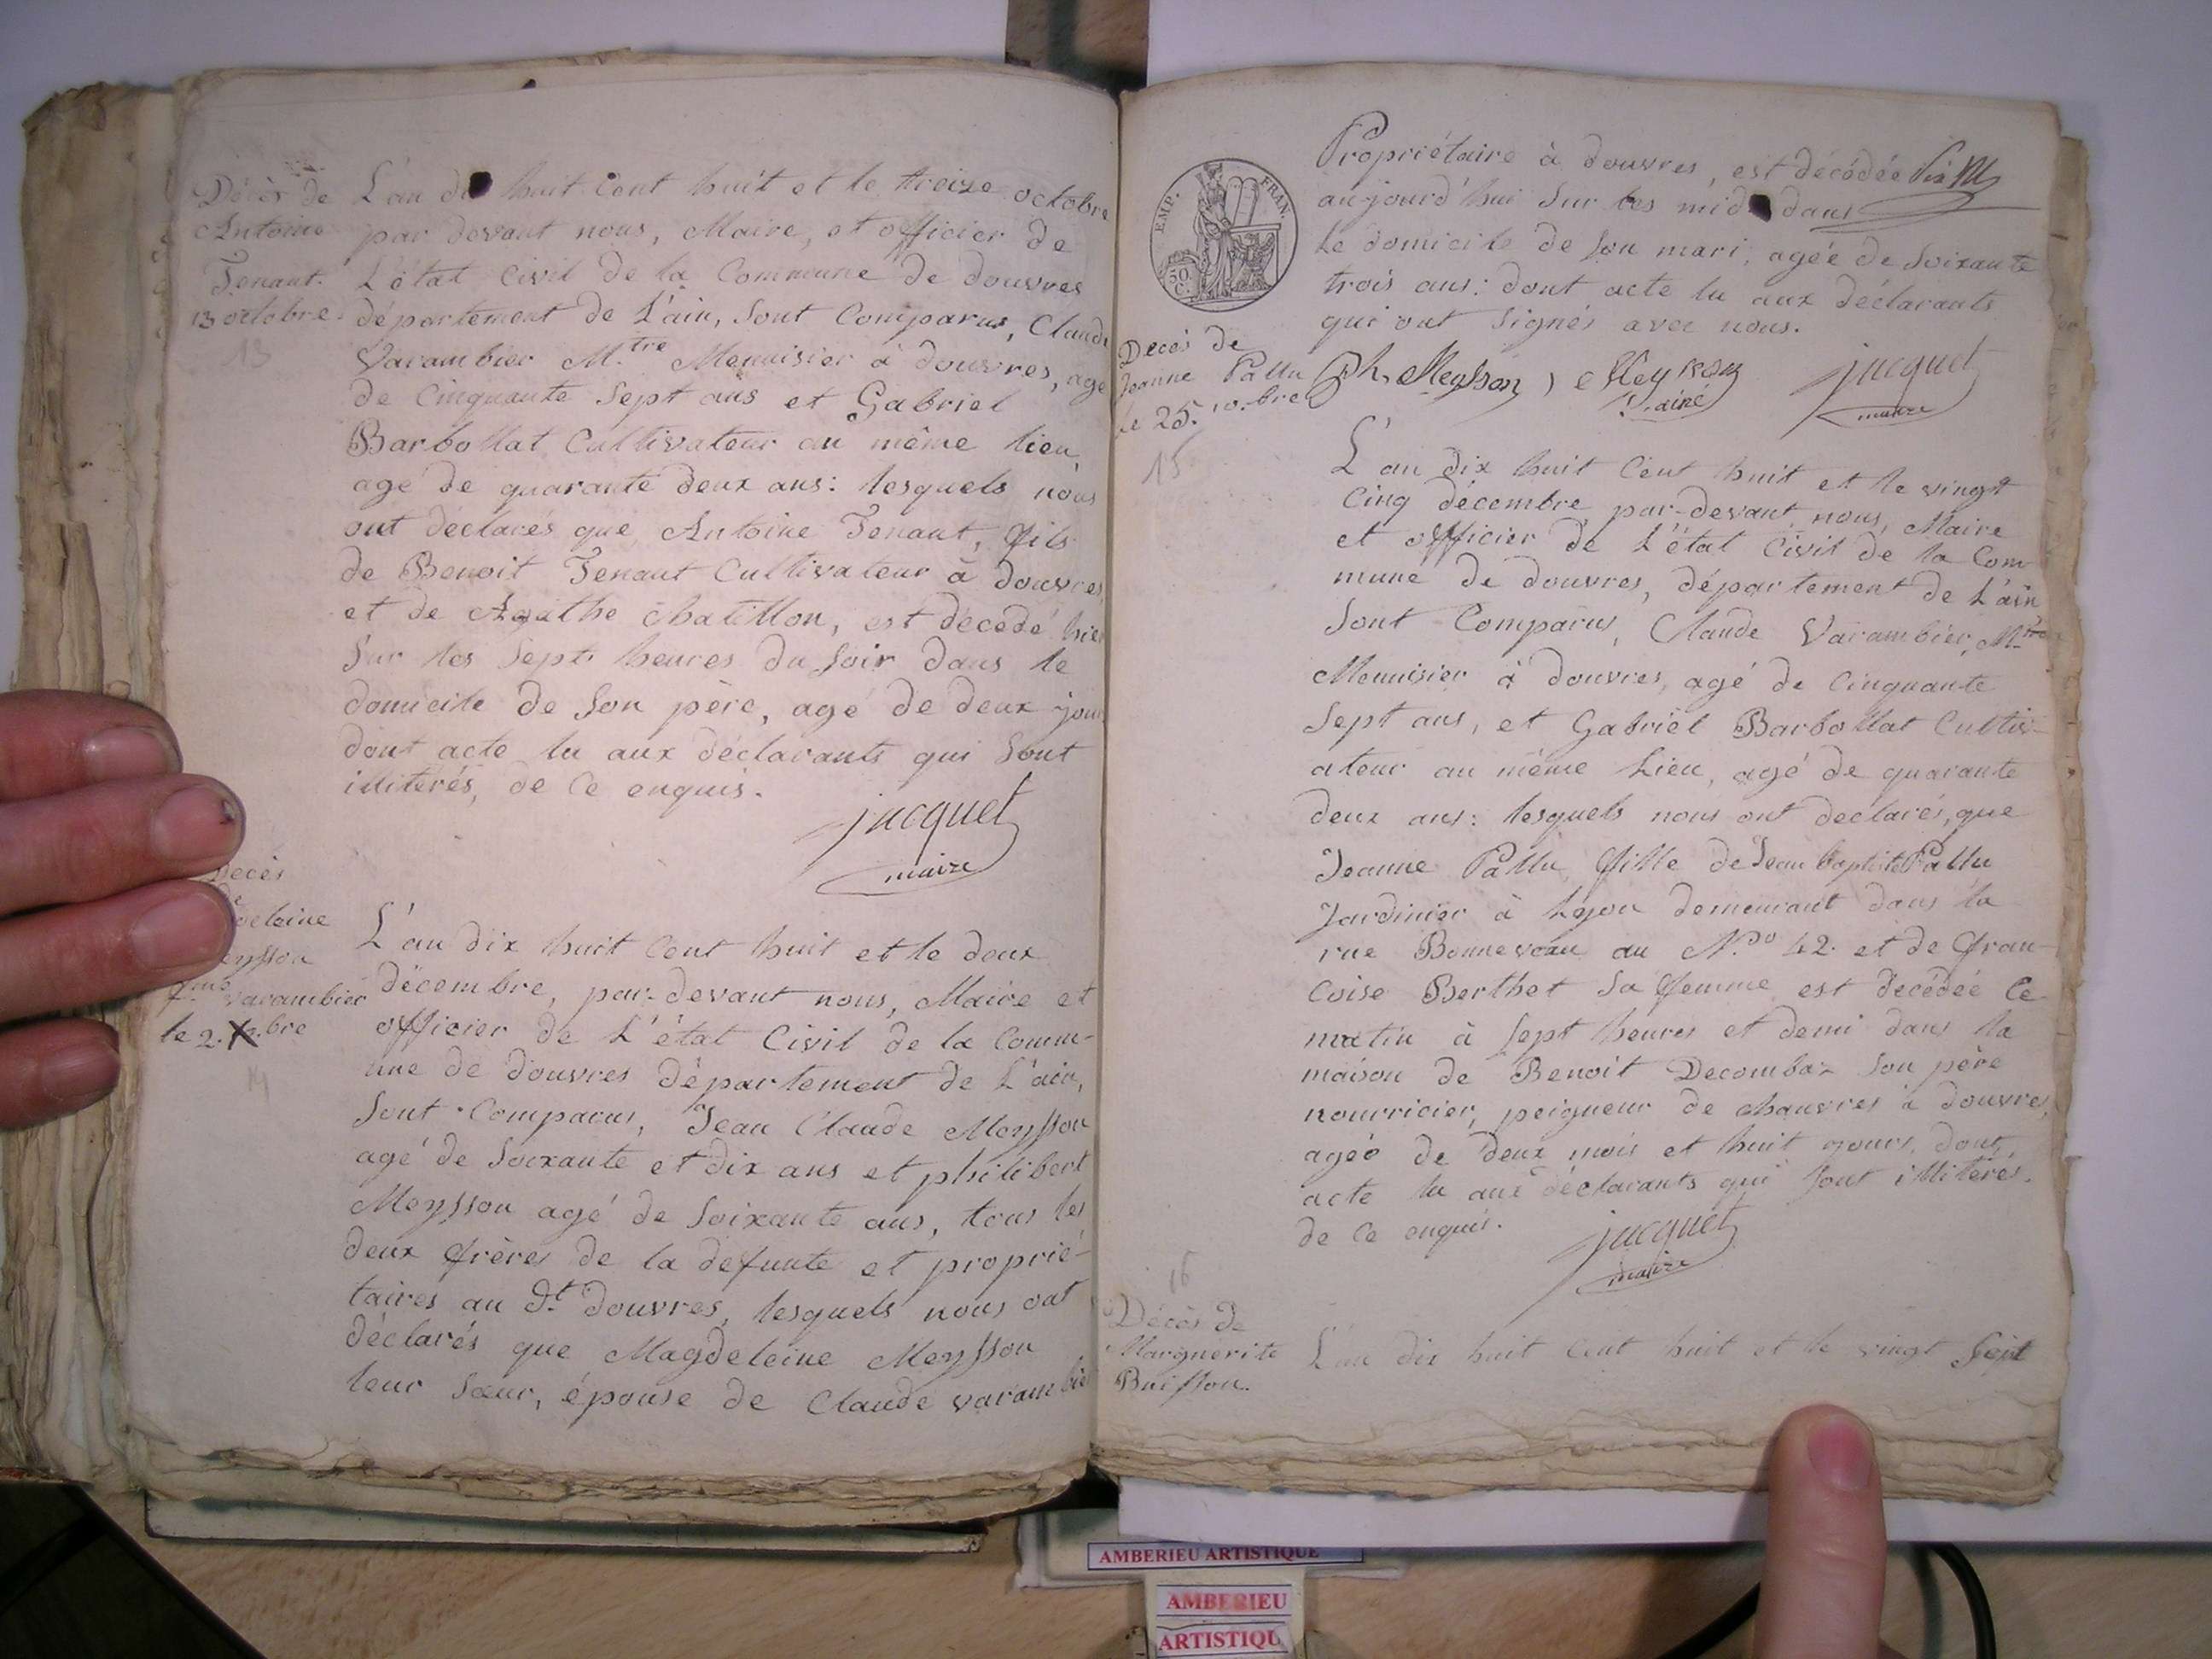 Décès de
Antoine
Tenant.
13 octobre
13
L'an dix huit Cent huit et le treize octobre
par devant nous, Maire, et officier de
L'état Civil de la Commune de douvres
département de L'ain, Sont Comparus, Claude
Varambier M.tre Menuisier à douvres, agé
de Cinquante Sept ans et Gabriel
Barbollat Cultivateur au même lieu,
agé de quarante deux ans: lesquels nous
ont déclarés que Antoine Tenant, fils
de Benoit Tenant Cultivateur à douvres,
et de Agathe chatillon, est décédé hier
Sur les Sept heures du Soir dans le
domicile de Son père, agé de deux jours
dont acte lu aux déclarants qui Sont
illitérés, de Ce enquis.
jacquet
maire
Décès
de
deleine
eysson
f.me varambier
le 2. X.bre
14
L'an dix huit Cent huit et le deux
décembre, par-devant nous, Maire et
officier de L'état Civil de la Comm-
une de douvres département de L'ain,
Sont Comparus, Jean Claude Meysson
agé de Soixante et dix ans et philibert
Meysson agé de Soixante ans, tous les
deux frères de la defunte et proprié-
taires au d.t douvres, lesquels nous ont
déclarés que Magdeleine Meysson
leur Sœur, épouse de Claude varambier
EMP. FRAN.
50
C.
Propriétaire à douvres, est décédée
aujourd'hui Sur les midi dans
Le domicile de Son mari, agée de Soixante
trois ans: dont acte lu aux déclarants
qui ont Signés avec nous.
Ph. Meysson, Meysson jacquet
l'ainé maire
Décès de
Jeanne Pallu
le 25. 10.bre
15
L'an dix huit Cent huit et le vingt
Cinq décembre par-devant nous, Maire
et officier de L'état Civil de la Com
mune de douvres, département de L'ain
Sont Comparus, Claude Varambier, M.tre
Menuisier à douvres, agé de Cinquante
Sept ans, et Gabriel Barbollat Cultiv-
ateur au même Lieu, agé de quarante
deux ans: lesquels nous ont déclarés, que
Jeanne Pallu, fille de Jean baptiste Pallu
Jardinier à Lyon demeurant dans la
rue Bonneveau au N.o 42. et de fran-
Coise Berthet Sa femme est décédée Ce
matin à Sept heures et demi dans la
maison de Benoit Decombaz Son père
nourricier, peigneur de chauvres à douvres,
agée de deux mois et huit jours, dont
acte lu aux déclarants qui Sont illitérés.
de Ce enquis.
jacquet
maire
16
Décès de
Marguerite
Buisson.
L'an dix huit Cent huit et le vingt Sept
AMBERIEU ARTISTIQUE
AMBERIEU
ARTISTIQU